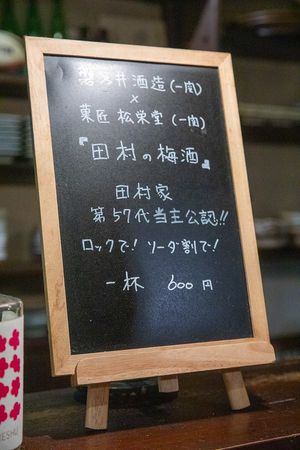 磐乃井酒造(一関)
×
菓匠 松栄堂(一関)
『田村の梅酒』
田村家
第57代当主公認!!
ロックで! ソーダ割で!
一杯 600円